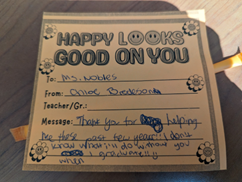 HAPPY LOOKS
GOOD ON YOU
To: Ms. Nobles
From: Chloe
Teacher/Gr.:
Message: Thank you for helping
me these past few years!! I dont
know what i'm do without you
when I graduate!!